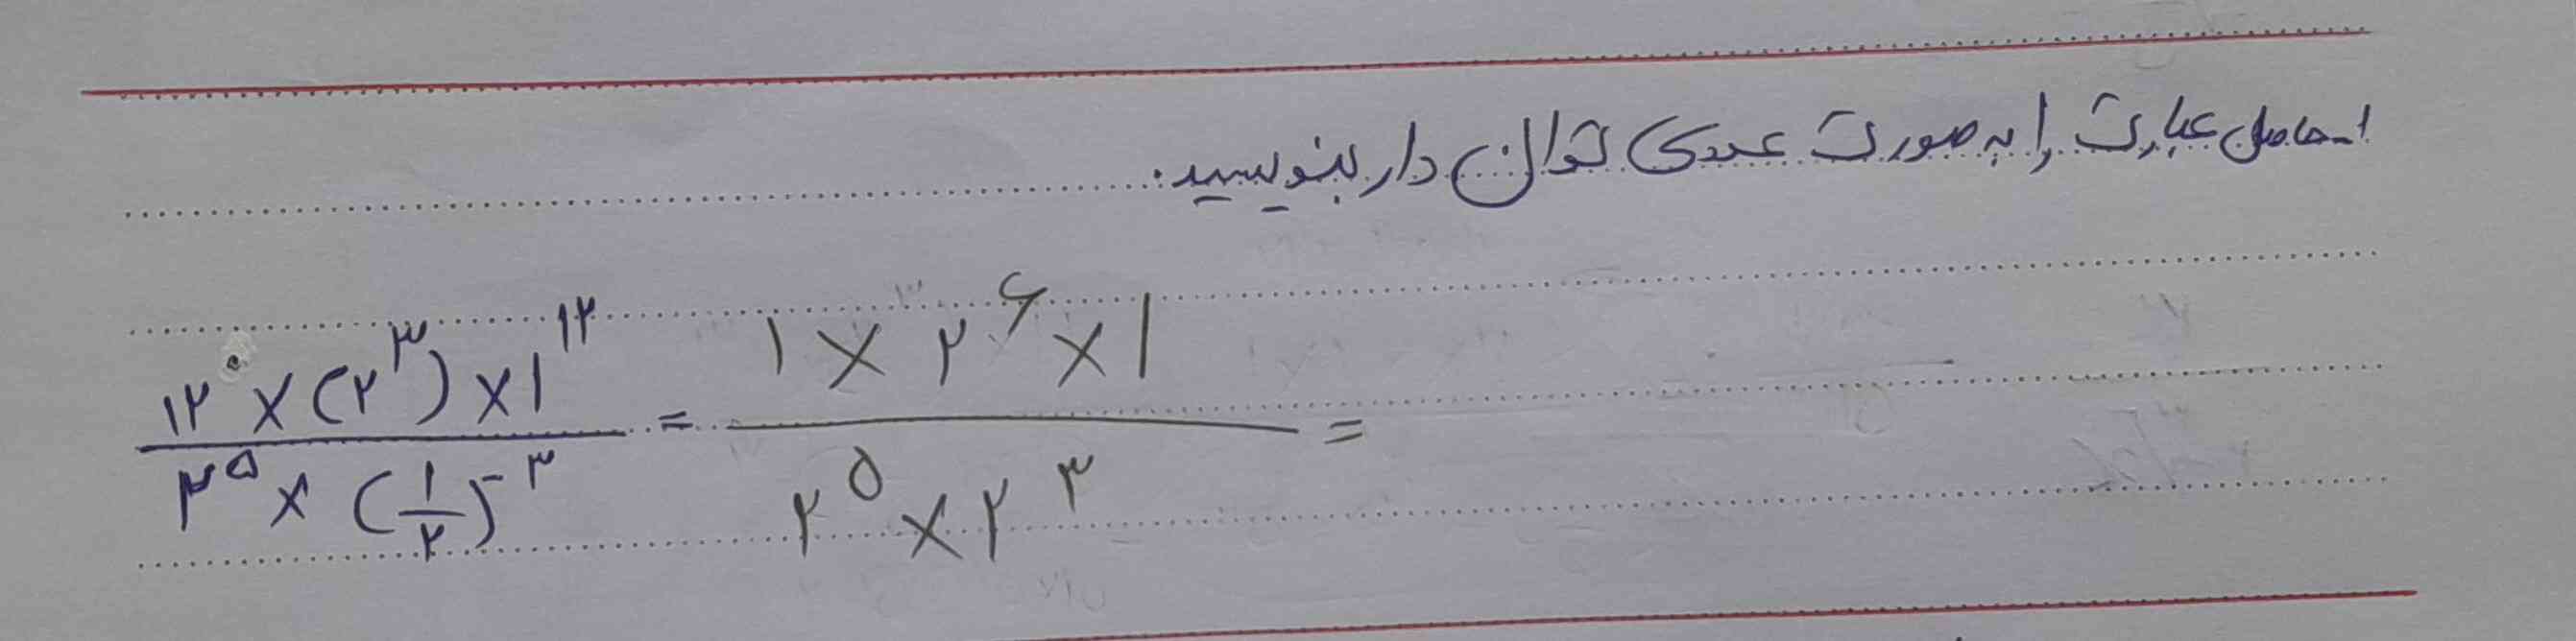 ۱_ حاصل عبارت را به صورت عددی توان دار بنویسید.
۱۲^۰ × (۲^۳) × ۱^۱۲ / ۲^۵ × (۱/۲)^-۳ = ۱ × ۲^۶ × ۱ / ۲^۵ × ۲^۳ =